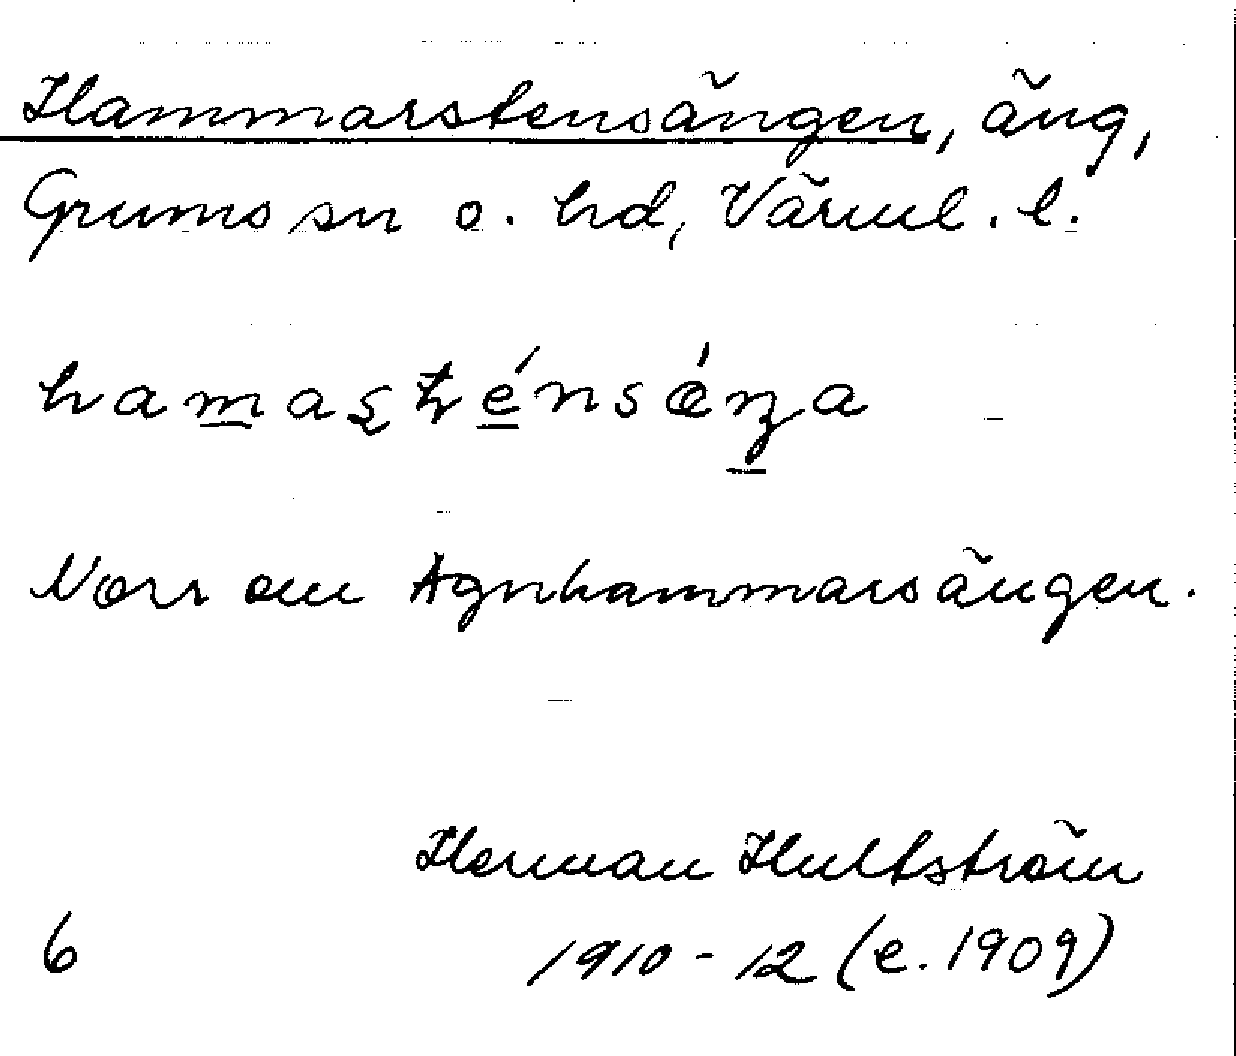 Hammarstensängen, äng,
Grums sn o. hd, Värml. l.
Norr om Agnhammarsängen.
Herman Hultström
6 1910-12 (e. 1909)